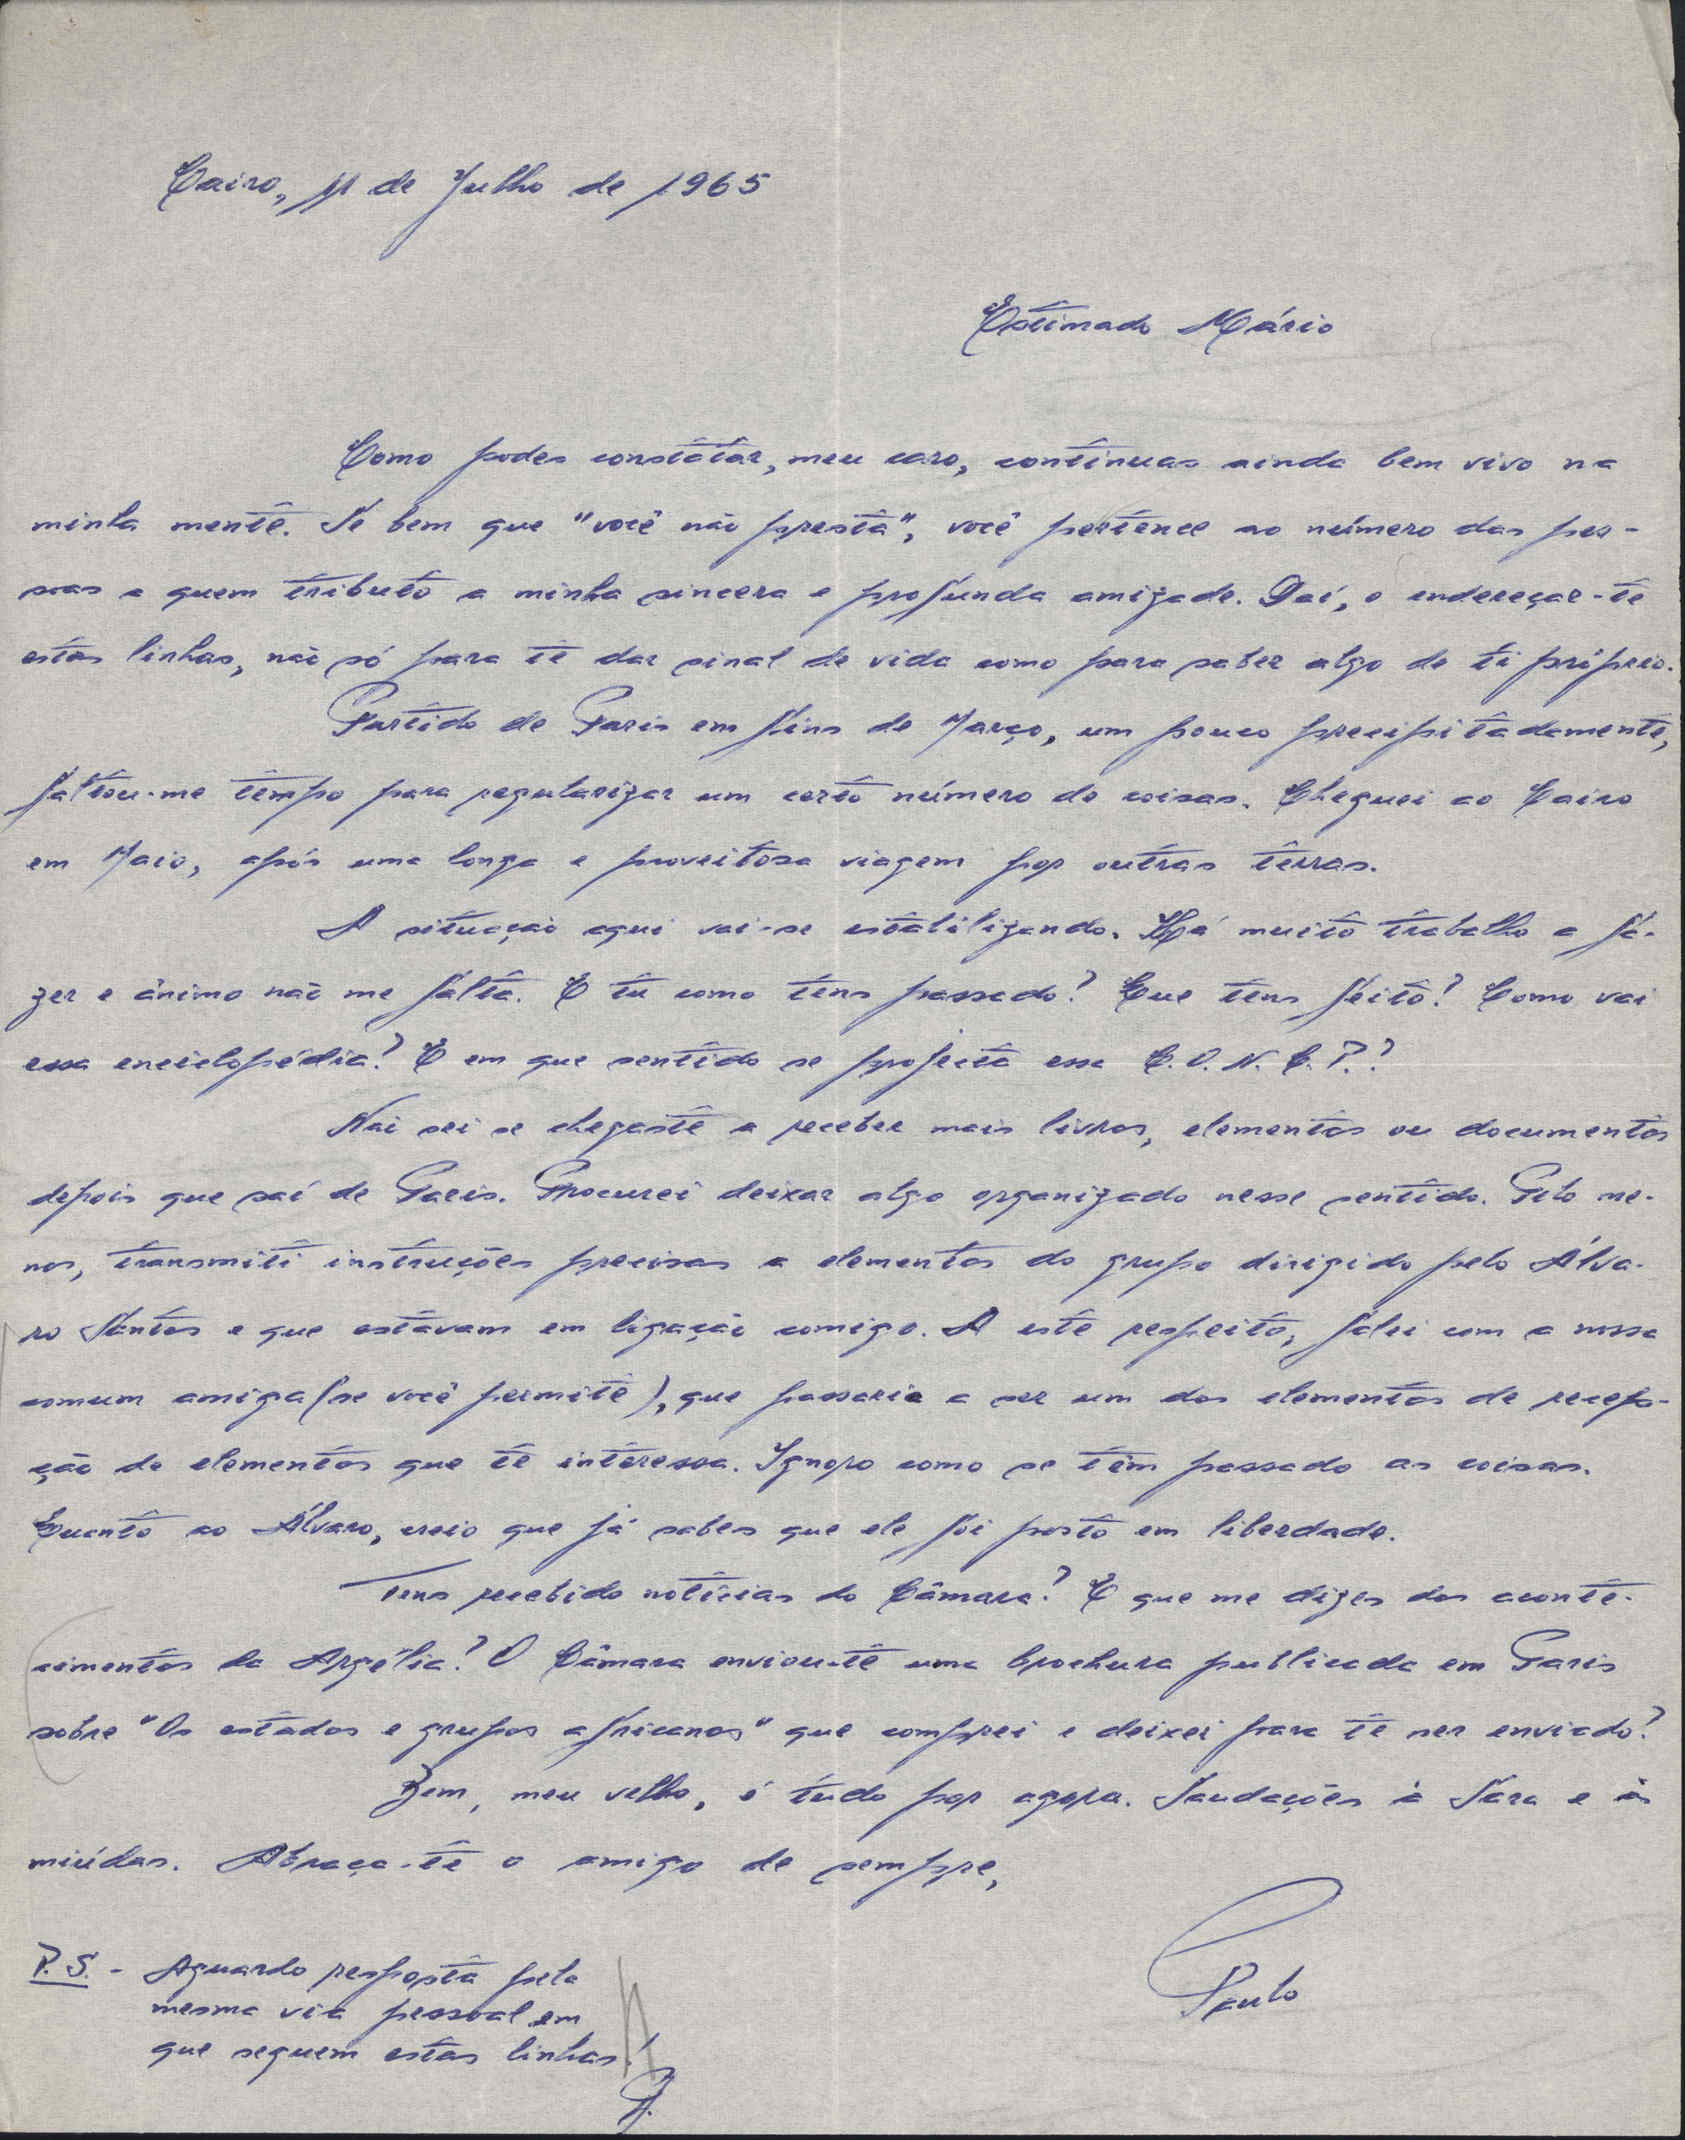 Cairo, 11 de Julho de 1965
Estimado Mário
Como podes constatar, meu caro, continuas ainda bem vivo na
minha mente. Se bem que "você não presta", você pertence ao número das pes-
soas a quem tributo a minha sincera e profunda amizade. Daí, o endereçar-te
estas linhas, não só para te dar sinal de vida como para saber algo de ti próprio.
Partido de Paris em fins de Março, um pouco precipitadamente,
faltou-me tempo para regularizar um certo número de coisas. Cheguei ao Cairo
em Maio, após uma longa e proveitosa viagem por outras terras.
A situação aqui vai-se estabilizando. Há muito trabalho a fa-
zer e ânimo não me falta. E tu como tens passado? Que tens feito? Como vai
essa enciclopédia? E em que sentido se projecta essa C.O.N.C.P.?
Não sei se chegaste a receber mais livros, elementos ou documentos
depois que saí de Paris. Procurei deixar algo organizado nesse sentido. Pelo me-
nos, transmiti instruções precisas a elementos do grupo dirigido pelo Álva-
ro Santos e que estavam em ligação comigo. A este respeito, falei com a nossa
comum amiga (se você permite), que passaria a ser um dos elementos de recep-
ção de elementos que te interessa. Ignoro como se têm passado as coisas.
Quanto ao Álvaro, creio que já sabes que ele foi posto em liberdade.
Tens recebido notícias do Câmara? E que me dizes dos aconte-
cimentos da Argélia? O Câmara enviou-te uma brochura publicada em Paris
sobre "Os estados e grupos africanos" que comprei e deixei para te ser enviado?
Bem, meu velho, é tudo por agora. Saudações à Sara e às
miúdas. Abraça-te o amigo de sempre,
Paulo
P.S. - Aguardo resposta pela
mesma via pessoal em
que seguem estas linhas!
P.